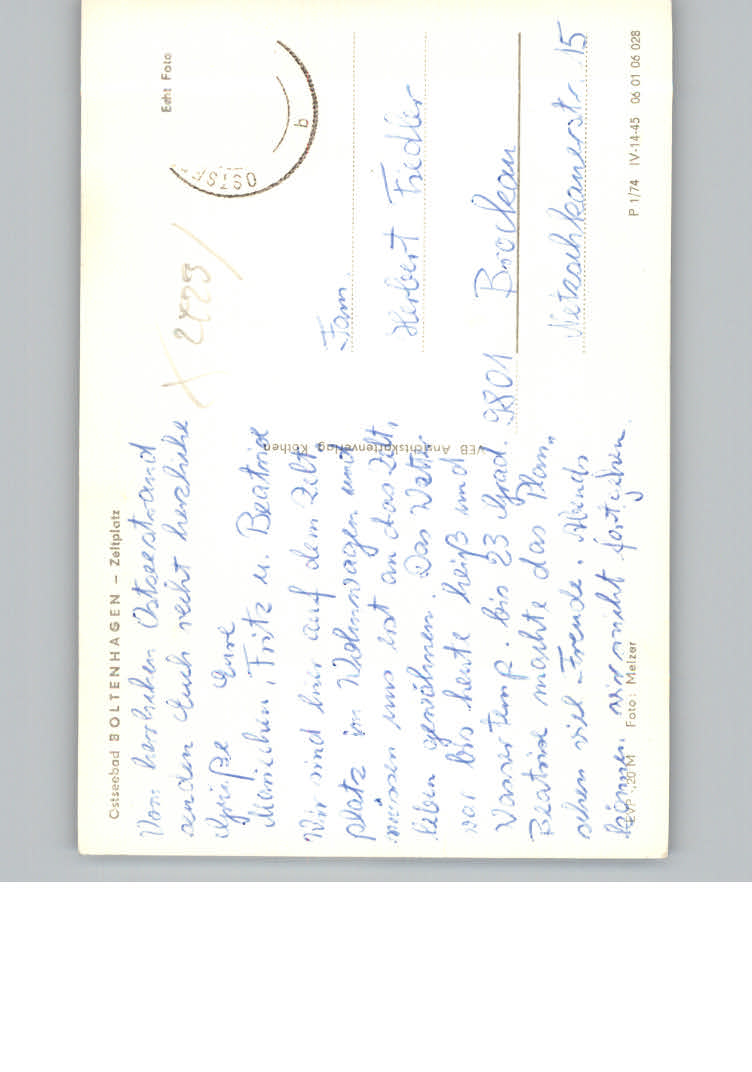 Ostseebad BOLTENHAGEN – Zeltplatz
Vom herrlichen Ostseestrand
senden Euch recht herzliche
Grüße Eure
Mariechen, Fritz u. Beatrice
Wir sind hier auf dem Zelt
platz im Wohnwagen und
müssen uns erst an das Zelt,
leben gewöhnen. Das Wetter
war bis heute heiß und
Wassertemp. bis 23 Grad.
Beatrice machte das Plan„
schen viel Freude. Abends
können wir nicht fortgehen.
EVP -,20 M Foto: Melzer
VEB Ansichtskartenverlag Köthen
Echt Foto
OSTSEE
b
X 2423
Fam.
Herbert Fiedler
9801 Brockau
Netzschkauerstr. 15
P 1/74 IV-14-45 06 01 06 028